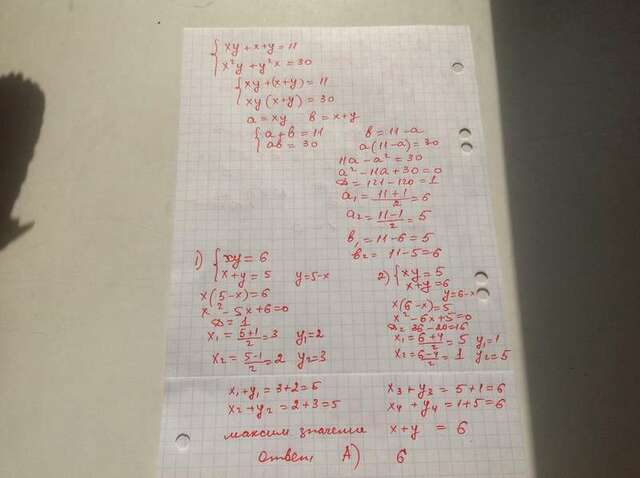 xy + x + y = 11
x²y + y²x = 30
xy + (x + y) = 11
xy (x + y) = 30
a = xy b = x + y
a + b = 11 b = 11 - a
ab = 30 a(11 - a) = 30
11a - a² = 30
a² - 11a + 30 = 0
D = 121 - 120 = 1
a₁ = (11 + 1)/2 = 6
a₂ = (11 - 1)/2 = 5
b₁ = 11 - 6 = 5
b₂ = 11 - 5 = 6
1) xy = 6
x + y = 5 y = 5 - x
x(5 - x) = 6
x² - 5x + 6 = 0
D = 1
x₁ = (5 + 1)/2 = 3 y₁ = 2
x₂ = (5 - 1)/2 = 2 y₂ = 3
2) xy = 5
x + y = 6
y = 6 - x
x(6 - x) = 5
x² - 6x + 5 = 0
D = 36 - 20 = 16
x₁ = (6 + 4)/2 = 5 y₁ = 1
x₂ = (6 - 4)/2 = 1 y₂ = 5
x₁ + y₁ = 3 + 2 = 5
x₂ + y₂ = 2 + 3 = 5
x₃ + y₃ = 5 + 1 = 6
x₄ + y₄ = 1 + 5 = 6
максим значение x + y = 6
ответ А) 6